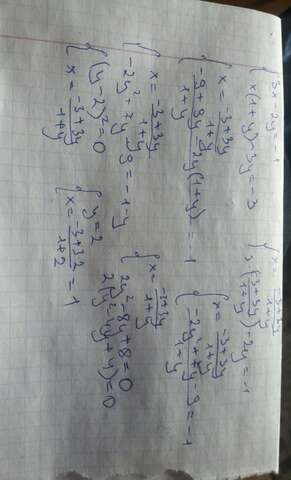 { 3x - 2y = -1
x(1+y) - 3y = -3
{ x = \frac{-3+3y}{1+y}
3(\frac{-3+3y}{1+y}) - 2y = -1
{ x = \frac{-3+3y}{1+y}
\frac{-9+9y-2y(1+y)}{1+y} = -1
{ x = \frac{-3+3y}{1+y}
\frac{-2y²+7y-9}{1+y} = -1
{ x = \frac{-3+3y}{1+y}
-2y²+7y-9 = -1-y
{ x = \frac{-3+3y}{1+y}
2y²-8y+8=0
2(y²-4y+4)=0
{ (y-2)²=0
x = \frac{-3+3y}{1+y}
{ y=2
x = \frac{-3+3·2}{1+2} = 1